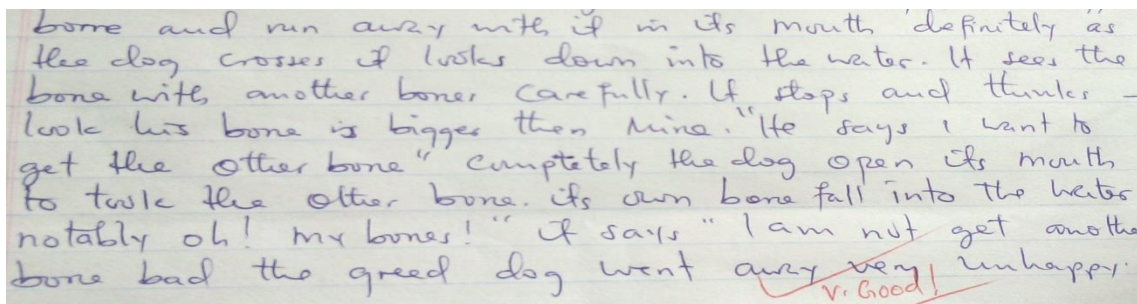 bone and run away with it in its mouth definitely "as
the dog crosses it looks down into the water. It sees the
bone with another bones carefully. It stops and thinks –
look his bone is bigger then mine. "He says I want to
get the other bone" cumptetely the dog open its mouth
to took the other bone. its own bone fall into the water
notably oh! my bones!" it says "I am not get anothe
bone bad the greed dog went away very unhappy.
V. Good!